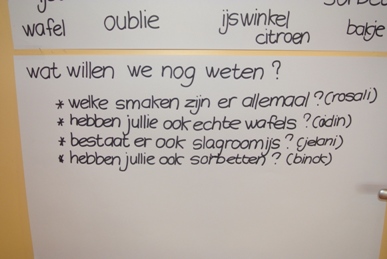 wafel oublie ijswinkel
citroen bakje
wat willen we nog weten ?
* welke smaken zijn er allemaal ? (rosali)
* hebben jullie ook echte wafels ? (adin)
* bestaat er ook slagroomijs ? (jelani)
* hebben jullie ook sorbetten ? (binck)